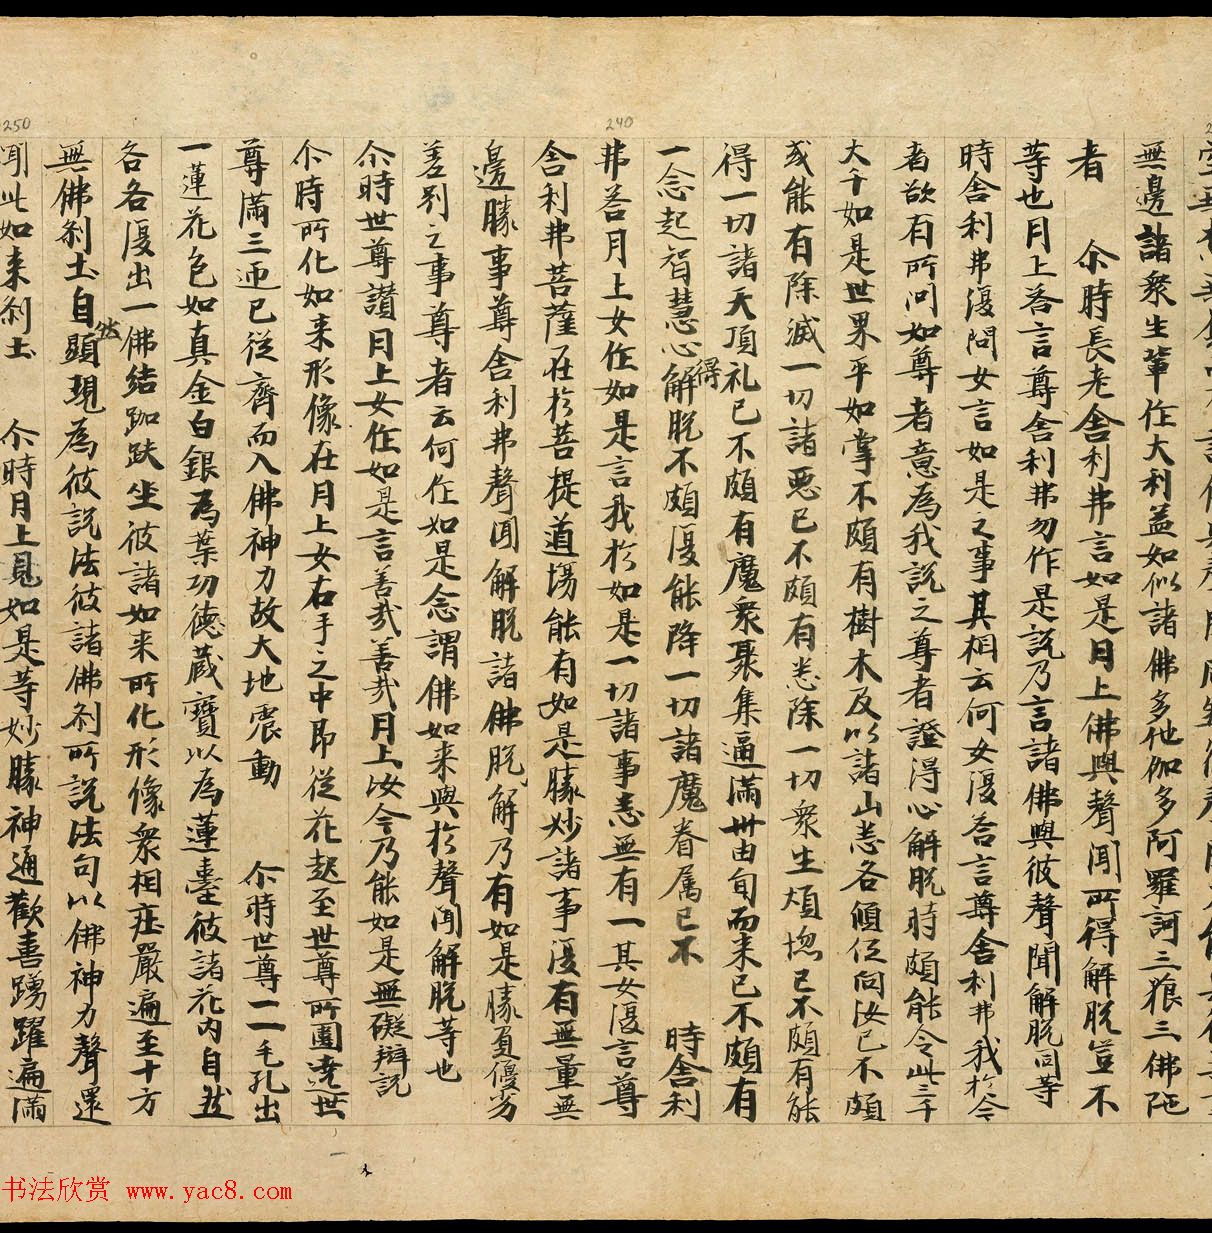 無邊諸衆生輩作大利益如似諸佛多他伽多阿羅訶三藐三佛陁
者 尒時長老舍利弗言如是月上佛與聲聞所得解脱豈不
等也月上荅言尊舍利弗勿作是説乃言諸佛與彼聲聞解脱同等
時舍利弗復問女言如是之事其相云何女復荅言尊舍利弗我於今
者欲有所問如尊者意為我説之尊者證得心解脱時頗能令此三千
大千如是世界平如掌不頗有樹木及以諸山悉各傾位向汝已不頗
或能有除滅一切諸惡已不頗有悉除一切衆生煩惚已不頗有能
得一切諸天頂礼已不頗有魔衆聚集遍滿卅由旬而来已不頗有
一念起智慧心解得脱不頗復能降一切諸魔眷属已不 時舍利
弗荅月上女作如是言我於如是一切諸事悉無有一其女復言尊
舍利弗菩薩在於菩提道場能有如是勝妙諸事復有無量無
邊勝事尊舍利弗聲聞解脱諸佛脱解乃有如是勝負優劣
差别之事尊者云何作如是念謂佛如来與於聲聞解脱等也
尒時世尊讃月上女作如是言善㢤善㢤月上汝今乃能如是無礙辯説
尒時所化如来形像在月上女右手之中即從花起至世尊所圍遶世
尊滿三迊已從齊而入佛神力故大地震動 尒時世尊一一毛孔出
一蓮花色如真金白銀為葉功徳蔵寶以為蓮臺彼諸花内自然
各各復出一佛結跏趺坐彼諸如来所化形像衆相庄嚴遍至十方
無佛刹土自然顯現為彼説法彼諸佛刹所説法句以佛神力聲還
聞此如来刹土 尒時月上見如是等妙勝神通歡喜踴躍遍滿
240
250
书法欣赏 www.yac8.com